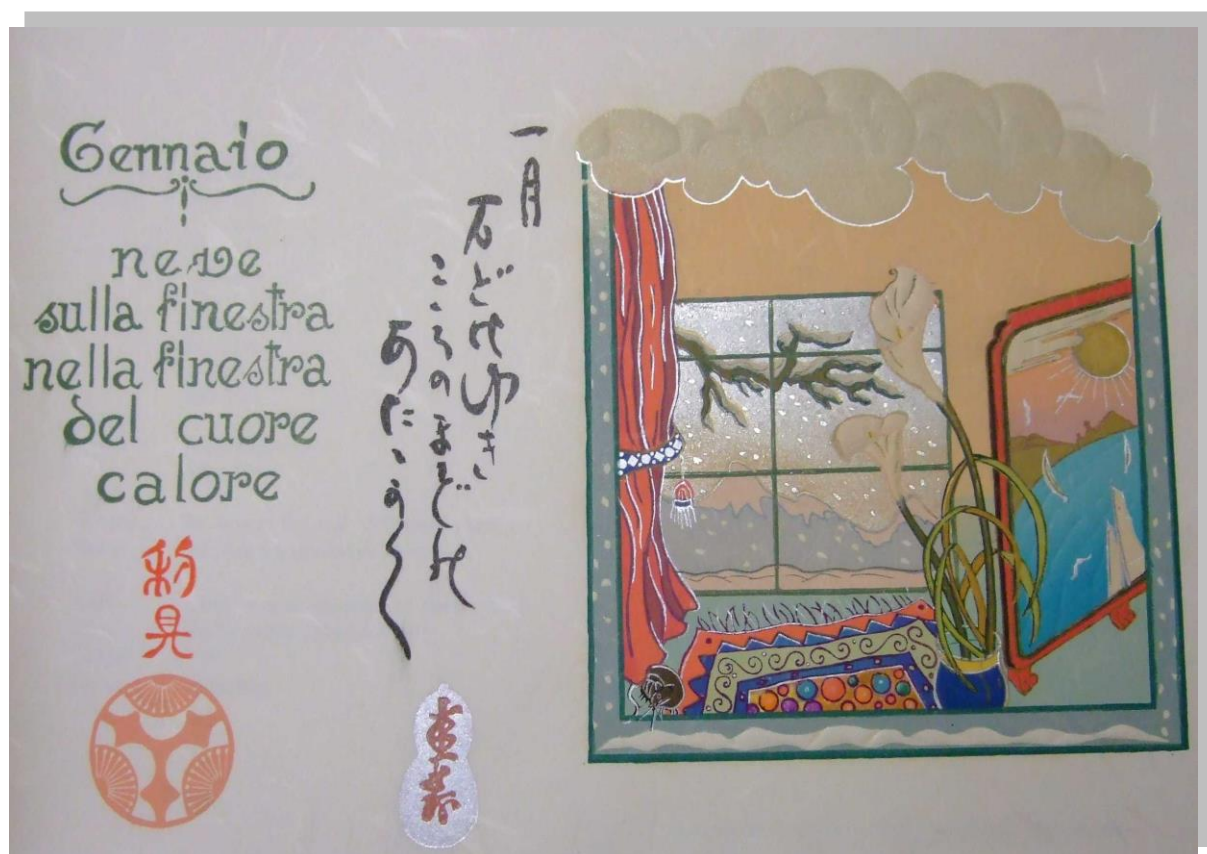 Gennaio
neve
sulla finestra
nella finestra
del cuore
calore
一月
万どにゆき
こころのまどに
あたゝかく